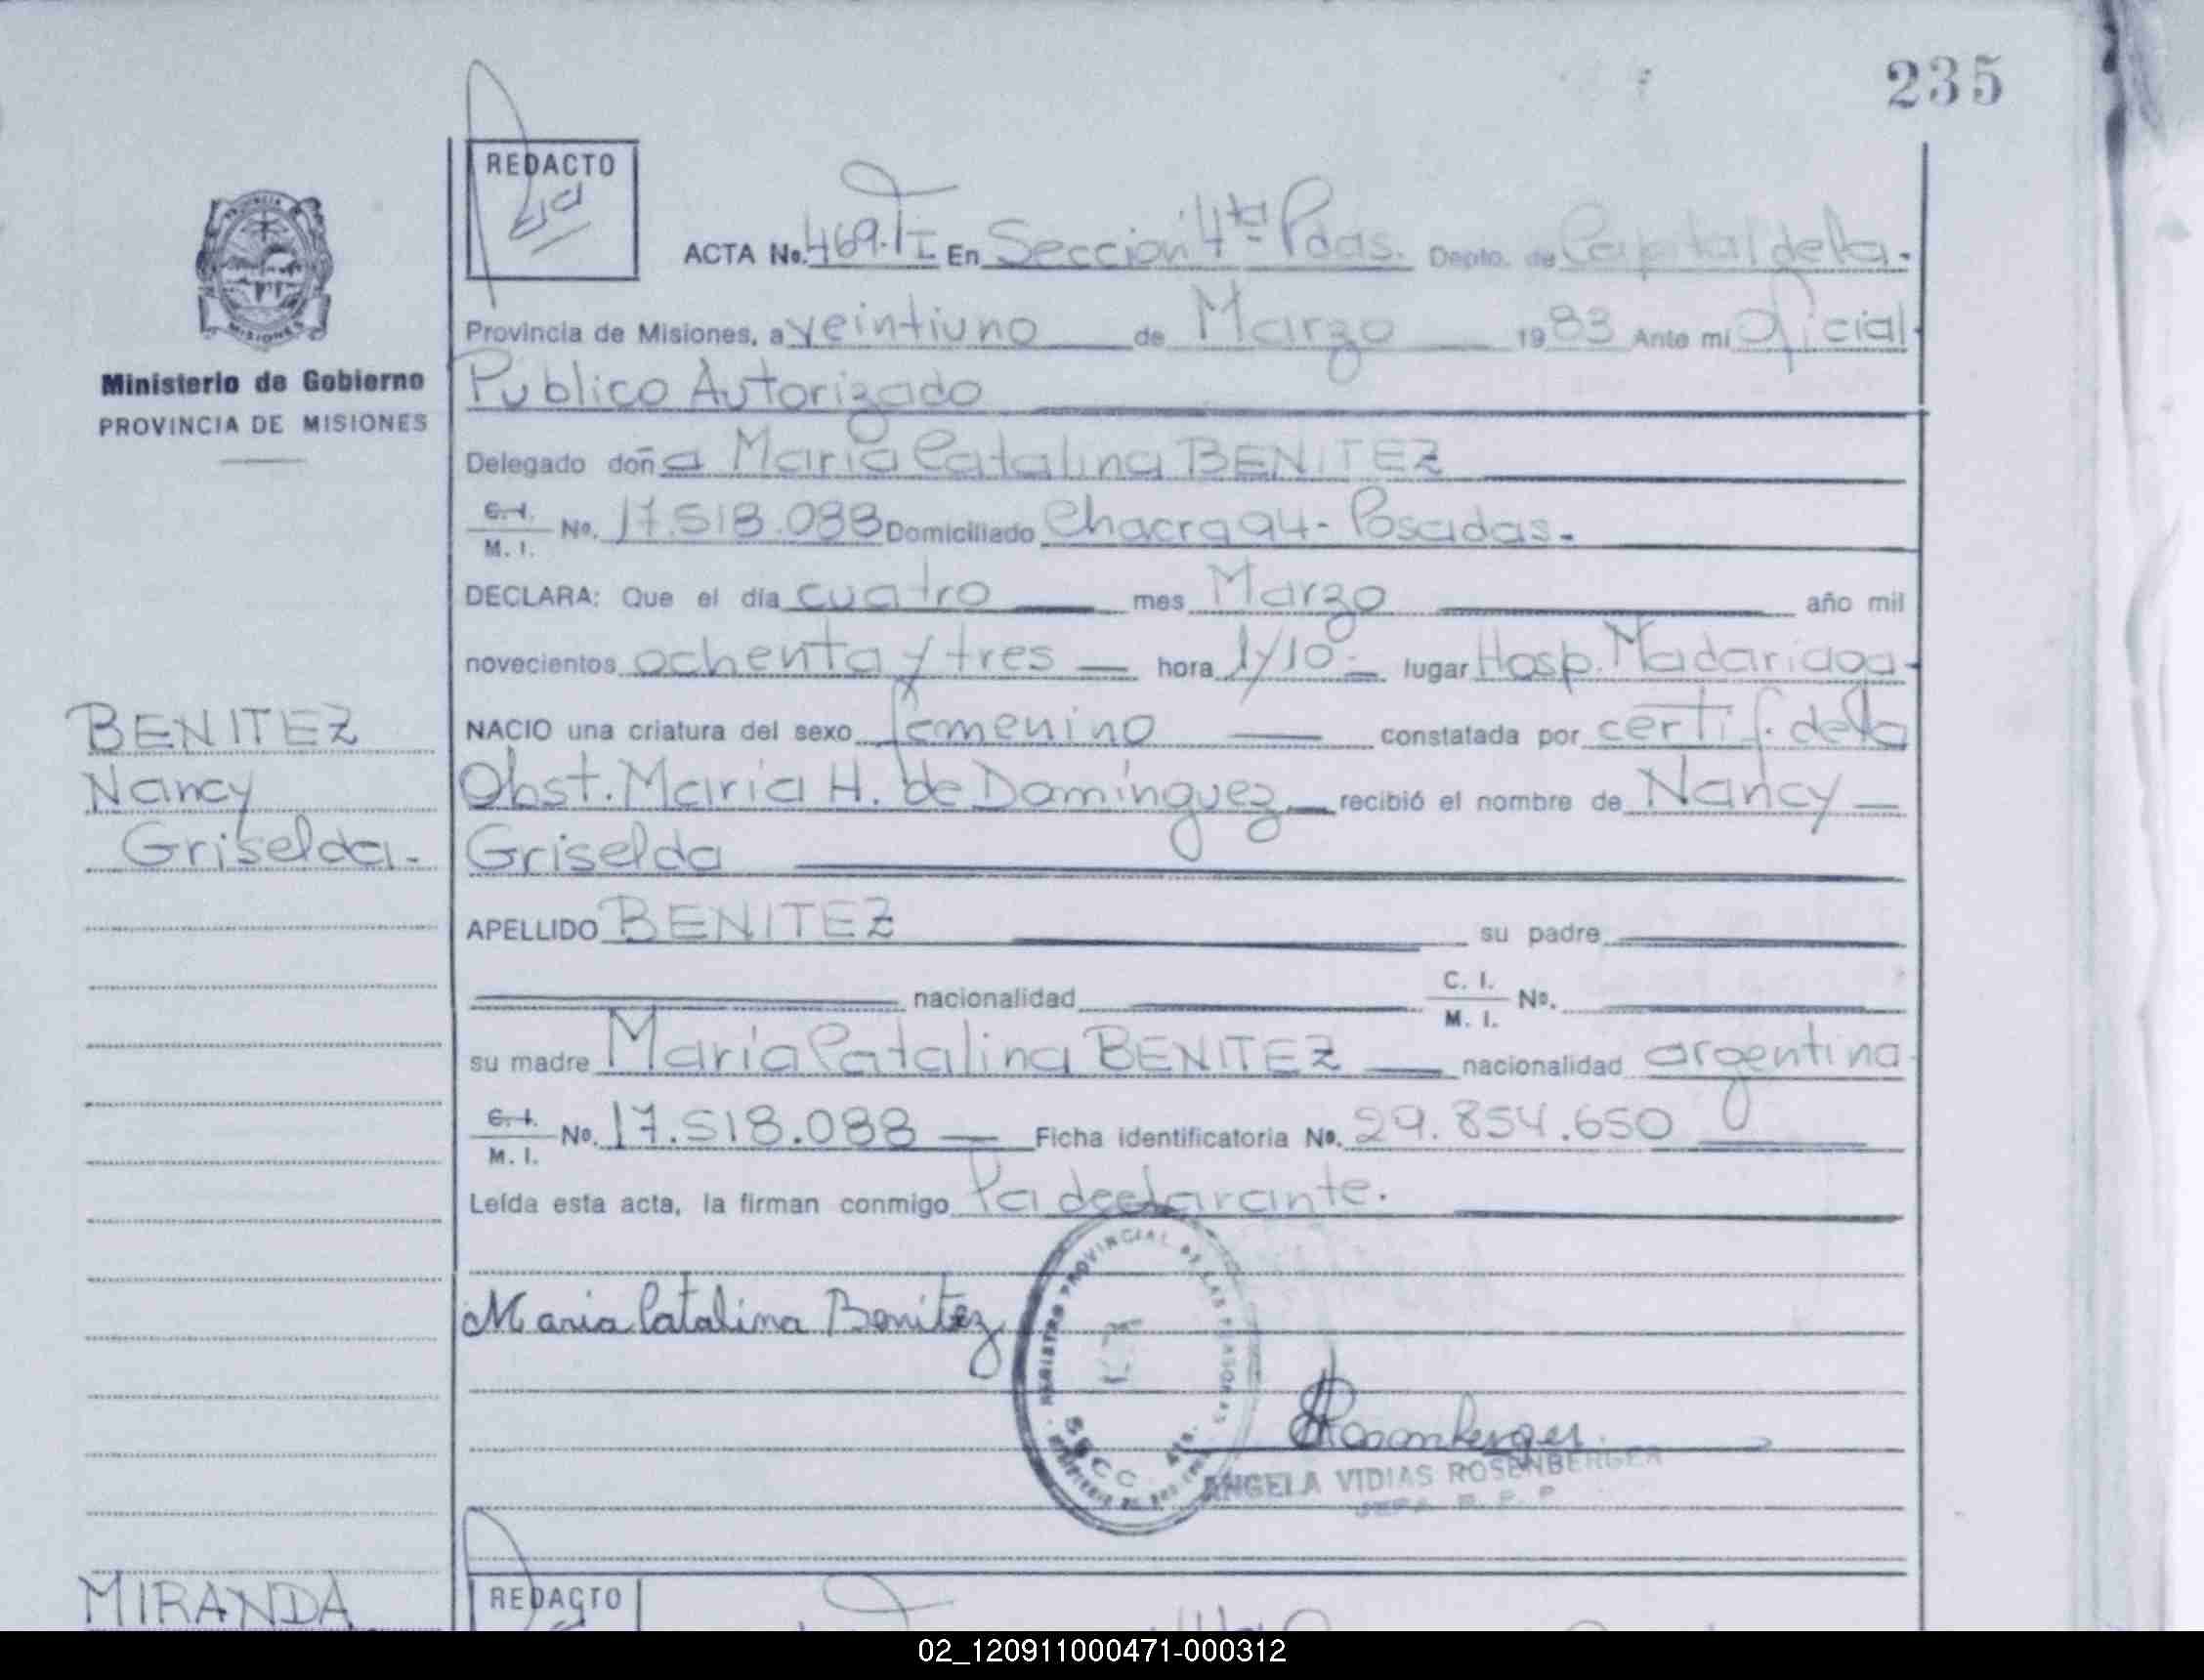 235
REDACTO
ACTA No. 469. T I En Seccion 4ta Pdas. Depto. de Capital de la.
Provincia de Misiones, a veintiuno de Marzo 1983 Ante mi Oficial
Publico Autorizado
Ministerio de Gobierno
PROVINCIA DE MISIONES
Delegado doña Maria Catalina BENITEZ
C. I. / M. I. No. 17.518.088 Domiciliado Chacra 94- Posadas.-
DECLARA: Que el día cuatro mes Marzo año mil
novecientos ochenta y tres hora 1/10- lugar Hosp. Madariaga-
BENITEZ
Nancy
Griselda.
NACIO una criatura del sexo femenino constatada por certif. de la
Obst. Maria H. de Domínguez recibió el nombre de Nancy
Griselda
APELLIDO BENITEZ su padre
nacionalidad C. I. / M. I. No.
su madre María Catalina BENITEZ nacionalidad argentina
C. I. / M. I. No. 17.518.088 Ficha identificatoria No. 29.854.650
Leída esta acta, la firman conmigo la declarante.
Maria Catalina Benitez
REGISTRO PROVINCIAL DE LAS PERSONAS
SECC. 4ta.
Rosenberger
ANGELA VIDIAS ROSENBERGER
JEFA R. P. P.
MIRANDA
REDACTO
02_120911000471-000312